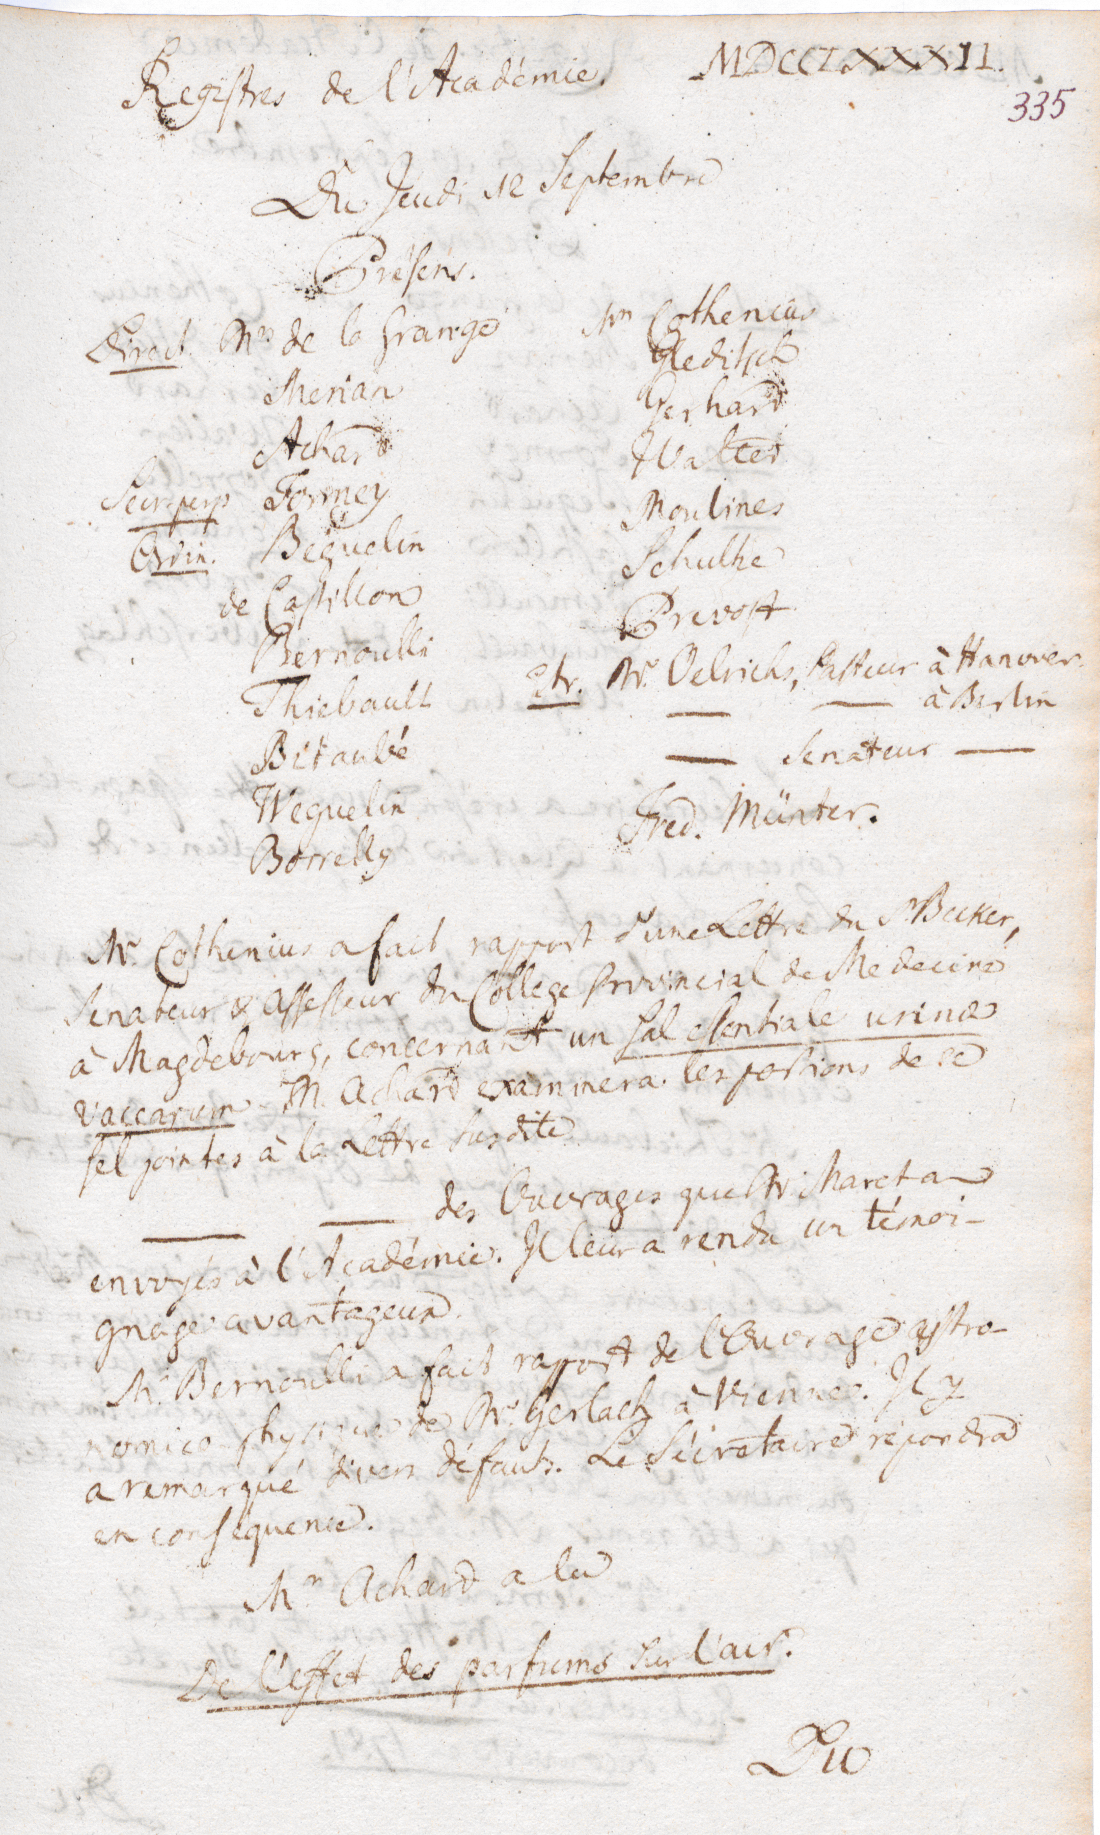 Registres de l'Académie. MDCCLXXXII.
335
Du Jeudi 12 Septembre
Présens.
Direct. Mrs de la Grange
Merian
Achard
Secr. perp. Formey
Ordin. Beguelin
de Castillon
Bernoulli
Thiebault
Bitaubé
Weguelin
Borrelly
Mrs Cothenius
Gleditsch
Gerhard
Walter
Moulines
Schulze
Prevost
Etr. Mr. Oelrichs, Pasteur à Hanover.
— — à Berlin
— Senateur —
Fred. Münter.
Mr. Cothenius a fait rapport d'une Lettre du Sr. Becker,
Senateur & Assesseur du College Provincial de Medecine
à Magdebourg, concernant un Sal essentiale urinae
vaccarum. M. Achard examinera les portions de ce
sel jointes à la Lettre susdite
— — des Ouvrages que Mr Maret a
envoyés à l'Académie. Il leur a rendu un témoi-
gnage avantageux.
Mr. Bernoulli a fait rapport de l'Ouvrage astro-
nomico-physique de Mr. Gerlach à Vienne. Il y
a remarqué divers défauts. Le Sécretaire répondra
en consequence.
Mr. Achard a lu
De l'effet des parfums sur l'air.
Du